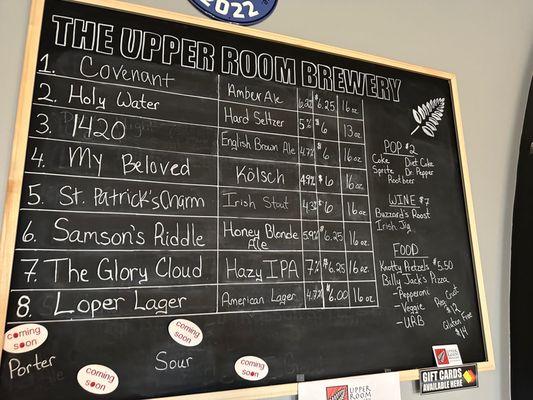 2022
THE UPPER ROOM BREWERY
1. Covenant Amber Ale $6.25 16oz
2. Holy Water Hard Seltzer 5% $6 13oz
3. 1420 English Brown Ale 4.7% $6 16oz
4. My Beloved Kölsch 4.9% $6 16oz
5. St. Patrick's Charm Irish Stout 4.3% $6 16oz
6. Samson's Riddle Honey Blonde Ale 5.9% $6.25 16oz
7. The Glory Cloud Hazy IPA 7% $6.25 16oz
8. Loper Lager American Lager 4.7% $6.00 16oz
POP $2
Coke Diet Coke
Sprite Dr. Pepper
Root beer
WINE $7
Buzzard's Roost
Irish Jig
FOOD
Knotty Pretzels $5.50
Billy Jack's Pizza
- Pepperoni
- Veggie
- URB
Reg Crust $12
Gluten Free $14
coming soon
Porter
coming soon
coming soon
Sour
coming soon
GIFT CARDS
AVAILABLE HERE
UPPER ROOM